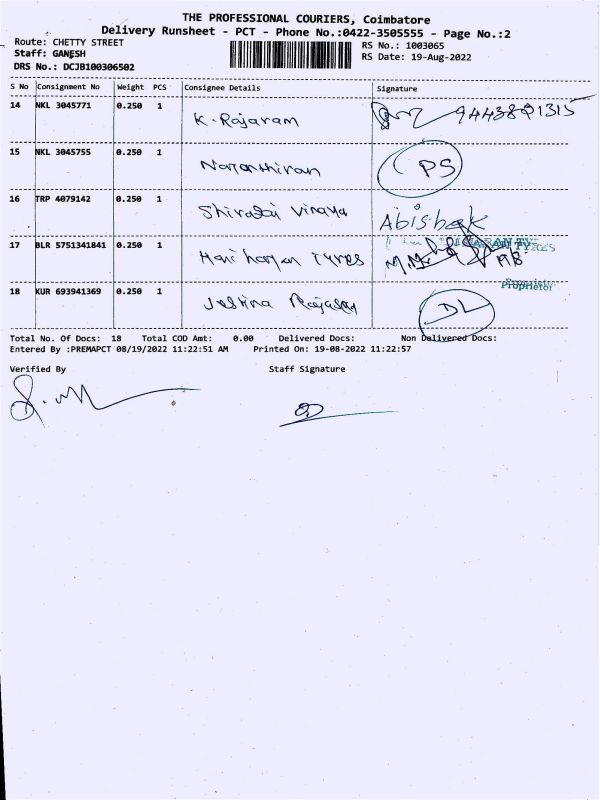 THE PROFESSIONAL COURIERS, Coimbatore
Delivery Runsheet - PCT - Phone No.:0422-3505555 - Page No.:2
Route: CHETTY STREET
RS No.: 1003065
Staff: GANESH
RS Date: 19-Aug-2022
DRS No.: DCJB100306502
S No Consignment No Weight PCS Consignee Details Signature
14 NKL 3045771 0.250 1 K. Rajaram 9443891315
15 NKL 3045755 0.250 1 PS
16 TRP 4079142 0.250 1 Abishek
17 BLR 5751341841 0.250 1 Hari haran Tyres
Proprietor
18 KUR 693941369 0.250 1 DL
Total No. Of Docs: 18 Total COD Amt: 0.00 Delivered Docs: Non Delivered Docs:
Entered By :PREMAPCT 08/19/2022 11:22:51 AM Printed On: 19-08-2022 11:22:57
Verified By Staff Signature